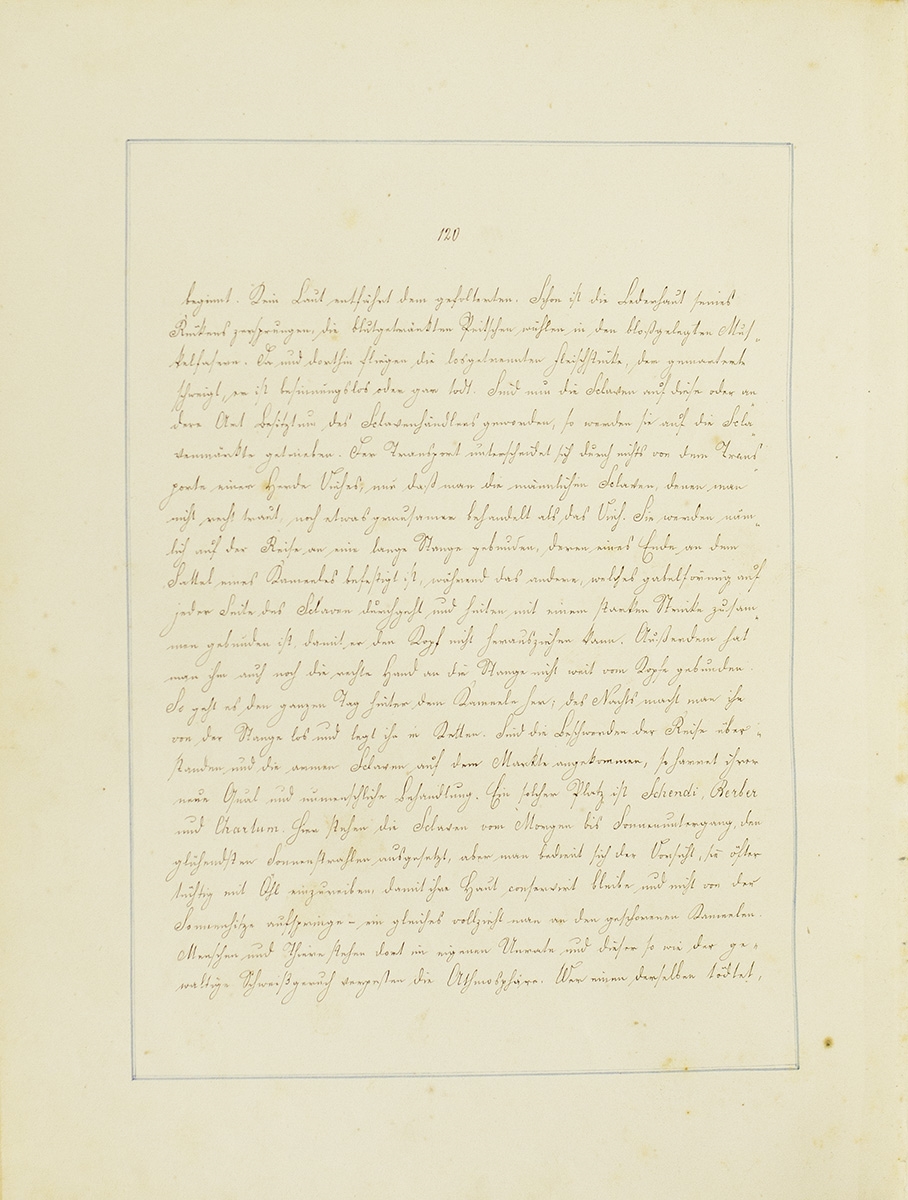 120
beginnt. Kein Laut entfährt dem gefolterten. Schon ist die Lederhaut seines
Rückens zersprungen, die blutgetränkten Peitschen wühlen in den bloßgelegten Mus„
kelfasern. Da und dorthin fliegen die losgetrennten Fleischstücke, der gemarterte
schweigt, er ist besinnungslos oder gar todt. Sind nun die Sclaven auf diese oder an„
dere Art Besitztum des Sclavenhändlers geworden, so werden sie auf die Scla„
venmärkte getrieben. Der Transport unterscheidet sich durch nichts von dem Trans„
porte einer Herde Viehes, nur daß man die männlichen Sclaven, denen man
nicht recht traut, noch etwas grausamer behandelt als das Vieh. Sie werden näm„
lich auf der Reise an eine lange Stange gebunden, deren eines Ende an dem
Sattel eines Kameeles befestigt ist, während das andere, welches gabelförmig auf
jeder Seite des Sclaven durchgeht und hinten mit einem starken Stricke zusam„
men gebunden ist, damit er den Kopf nicht herausziehen kann. Außerdem hat
man ihm auch noch die rechte Hand an die Stange nicht weit vom Kopfe gebunden.
So geht es den ganzen Tag hinter dem Kameele her; des Nachts macht man ihn
von der Stange los und legt ihn in Ketten. Sind die Beschwerden der Reise über„
standen und die armen Sclaven auf dem Markte angekommen, so harret ihrer
neue Qual und unmenschliche Behandlung. Ein solcher Platz ist Schendi, Berber
und Chartum. Hier stehen die Sclaven vom Morgen bis Sonnenuntergang, den
glühendsten Sonnenstrahlen ausgesetzt, aber man bedient sich der Vorsicht, sie öfter
tüchtig mit Öhl einzureiben, damit ihre Haut conservirt bleibe und nicht von der
Sonnenhitze aufspringe – ein gleiches vollzieht man an den geschorenen Kameelen.
Menschen und Thiere stehen dort im eigenen Unrate und dieser so wie der ge„
waltige Schweißgeruch verpesten die Athmosphäre. Wer einen derselben tödtet,